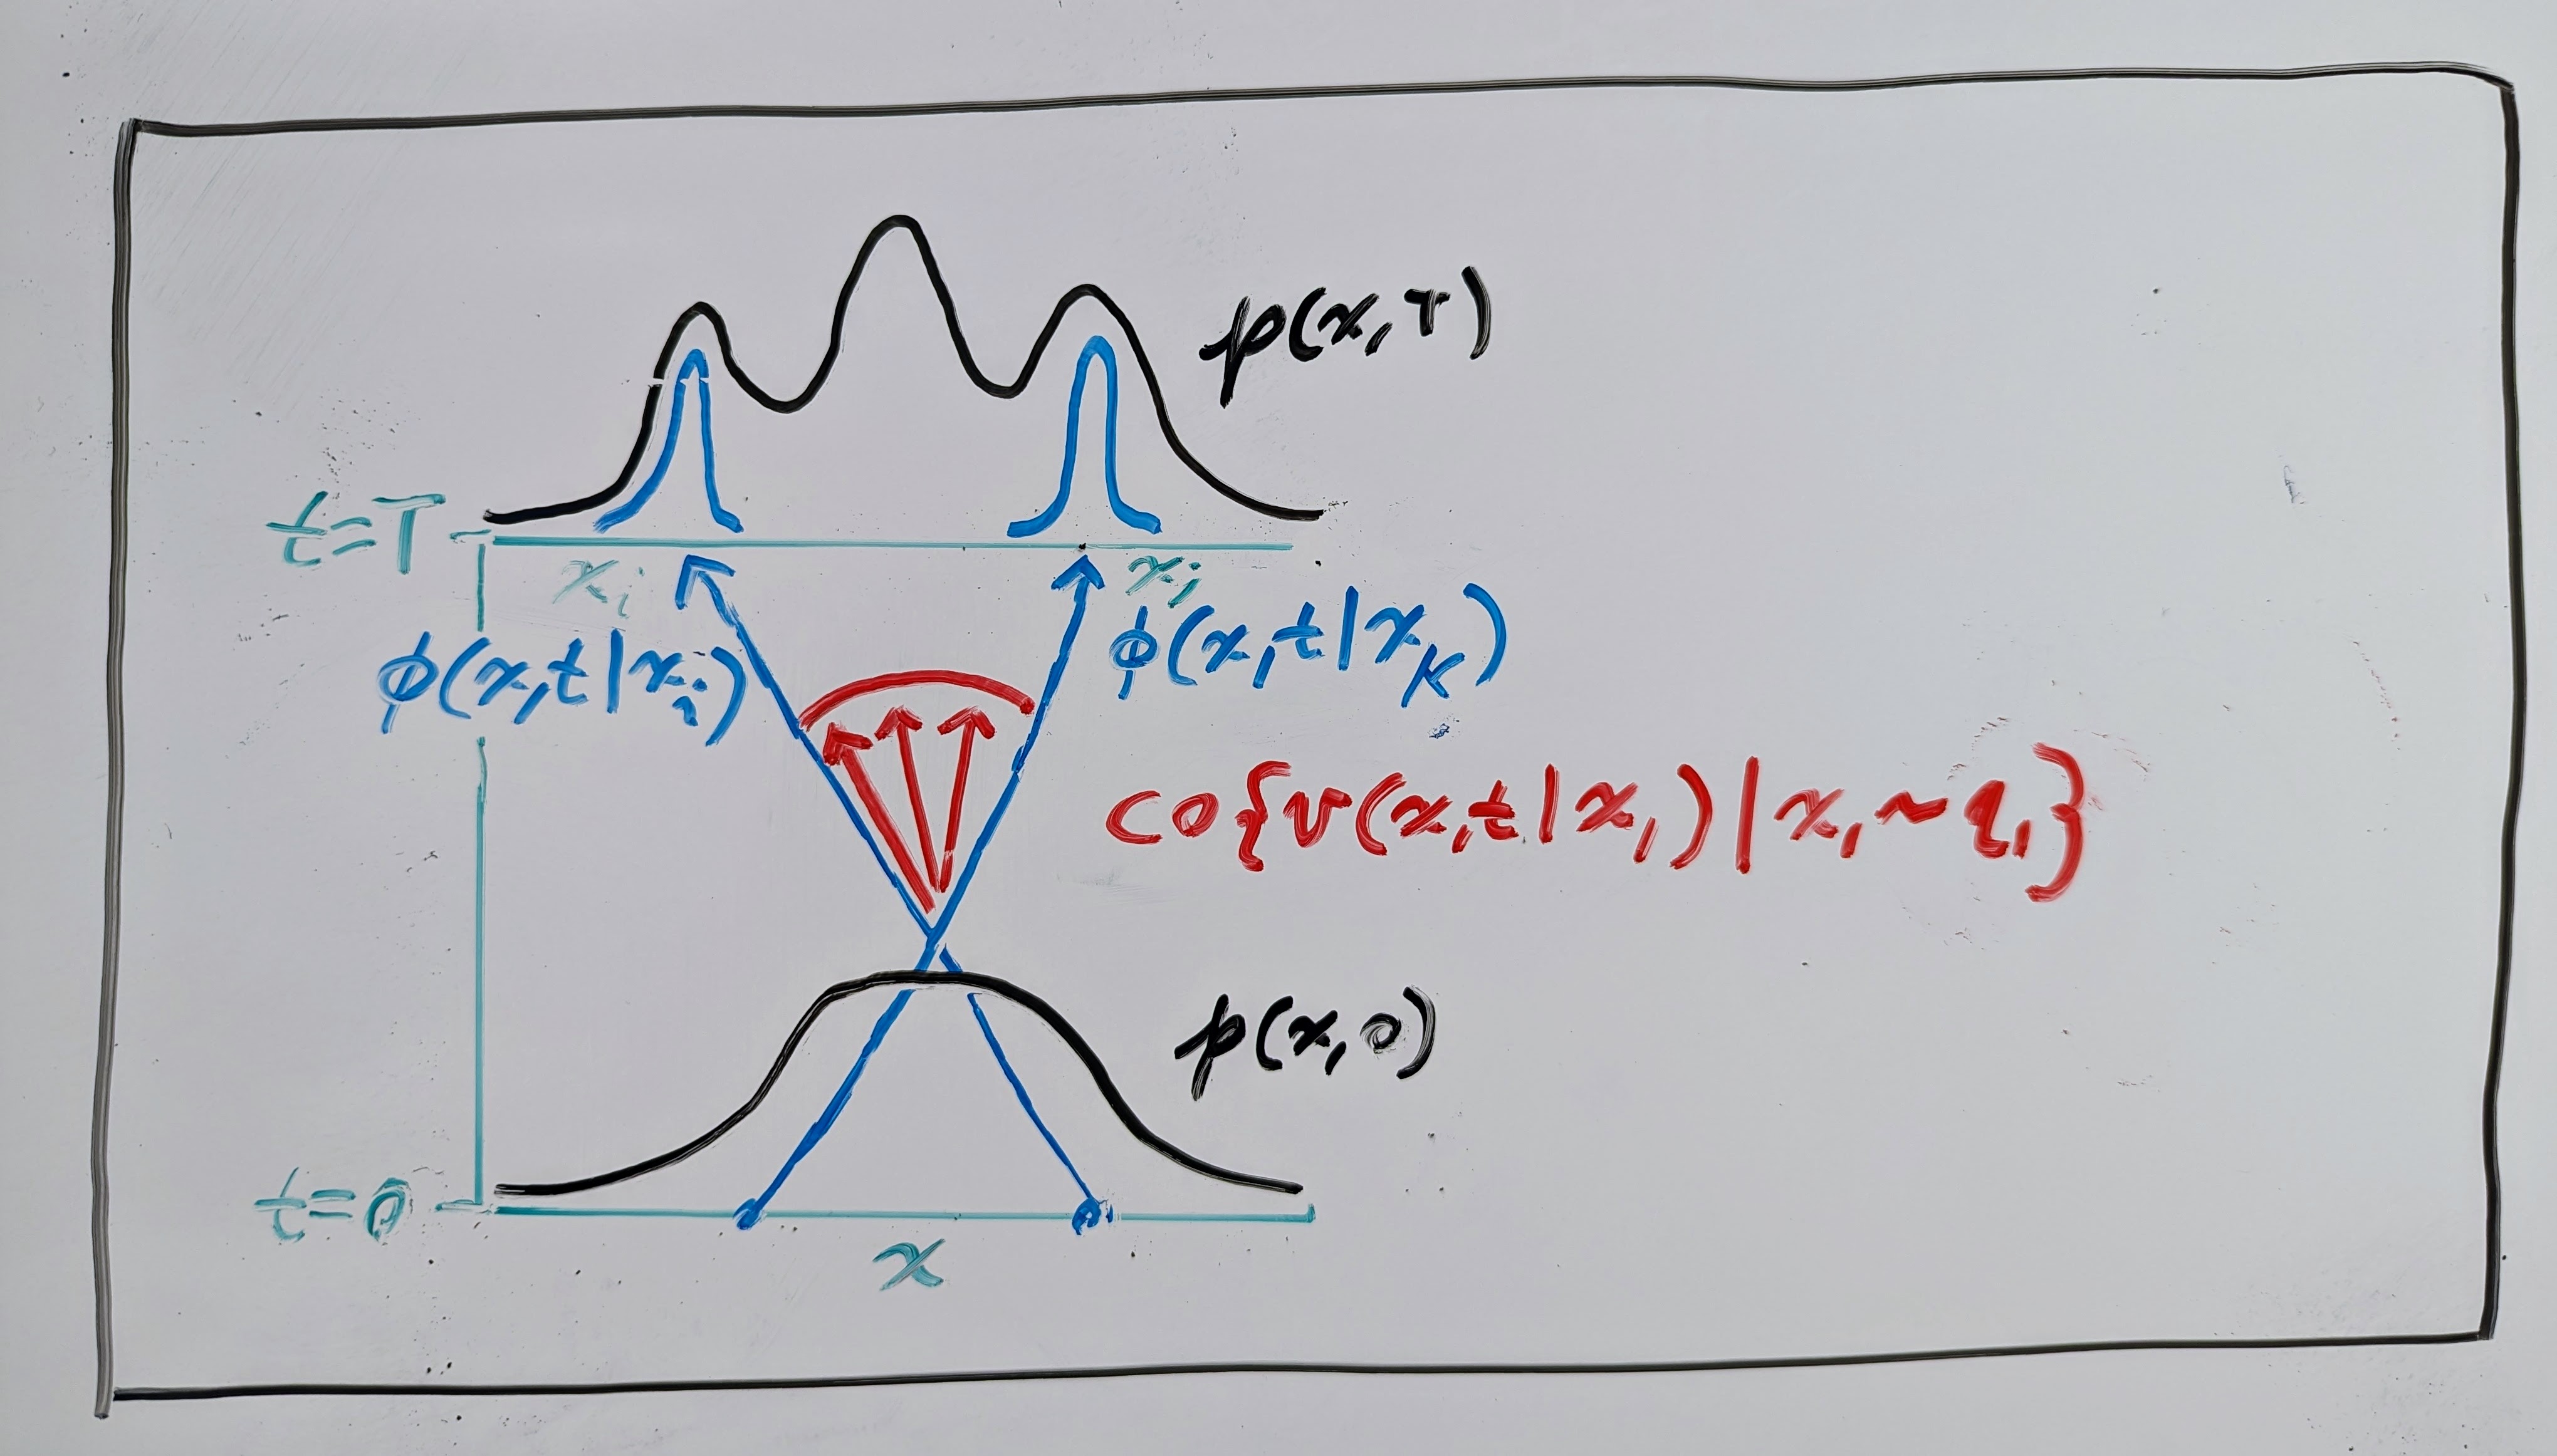 p(x,T)
t=T
xᵢ
xⱼ
ϕ(x,t|xᵢ)
ϕ(x,t|xₖ)
co{v(x,t|x₁)|x₁~q₁}
p(x,0)
t=0
x